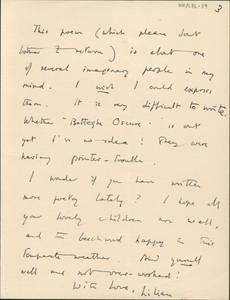 3
This poem (which please don't
bother to return) is about one
of several imaginary people in my
mind. I wish I could express
them. It is very difficult to write.
Whether "Botteghe Oscure" is out
yet I've no idea! They were
having printer-trouble.
I wonder if you have written
more poetry lately? I hope all
your lovely children are well,
and the beechwood happy in this
temperate weather. And yourself
well and not over-worked!
With love, Lilian